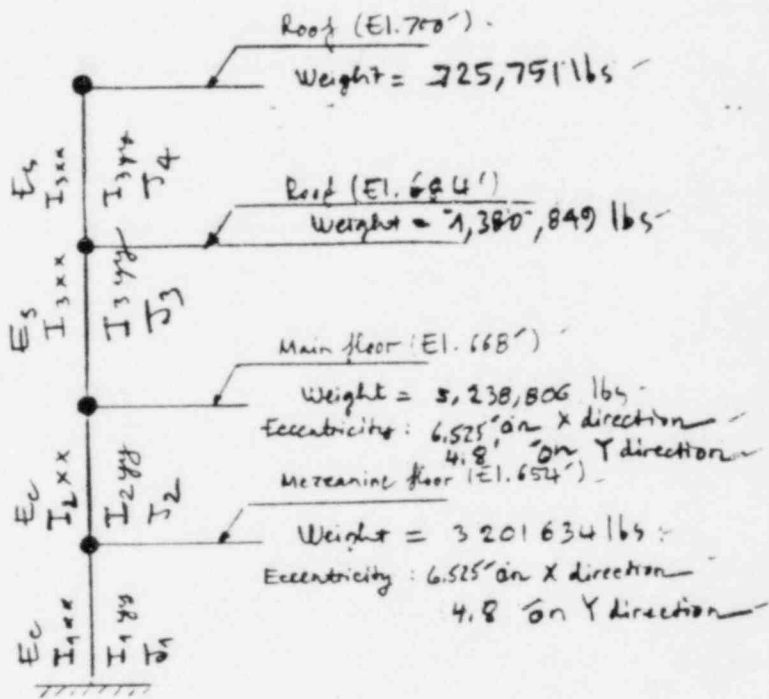 Roof (El. 700').
Weight = 725,751 lbs
Es
I3xx
I3yy
J4
Roof (El. 684')
Weight = 1,380,849 lbs
Es
I3xx
I3yy
J3
Main floor (El. 668')
Weight = 5,238,806 lbs
Eccentricity: 6.525' on X direction
4.8' on Y direction
Ec
I2xx
I2yy
J2
Mezanine floor (El. 654').
Weight = 3201634 lbs
Eccentricity: 6.525' on X direction
4.8' on Y direction
Ec
I1xx
I1yy
J1